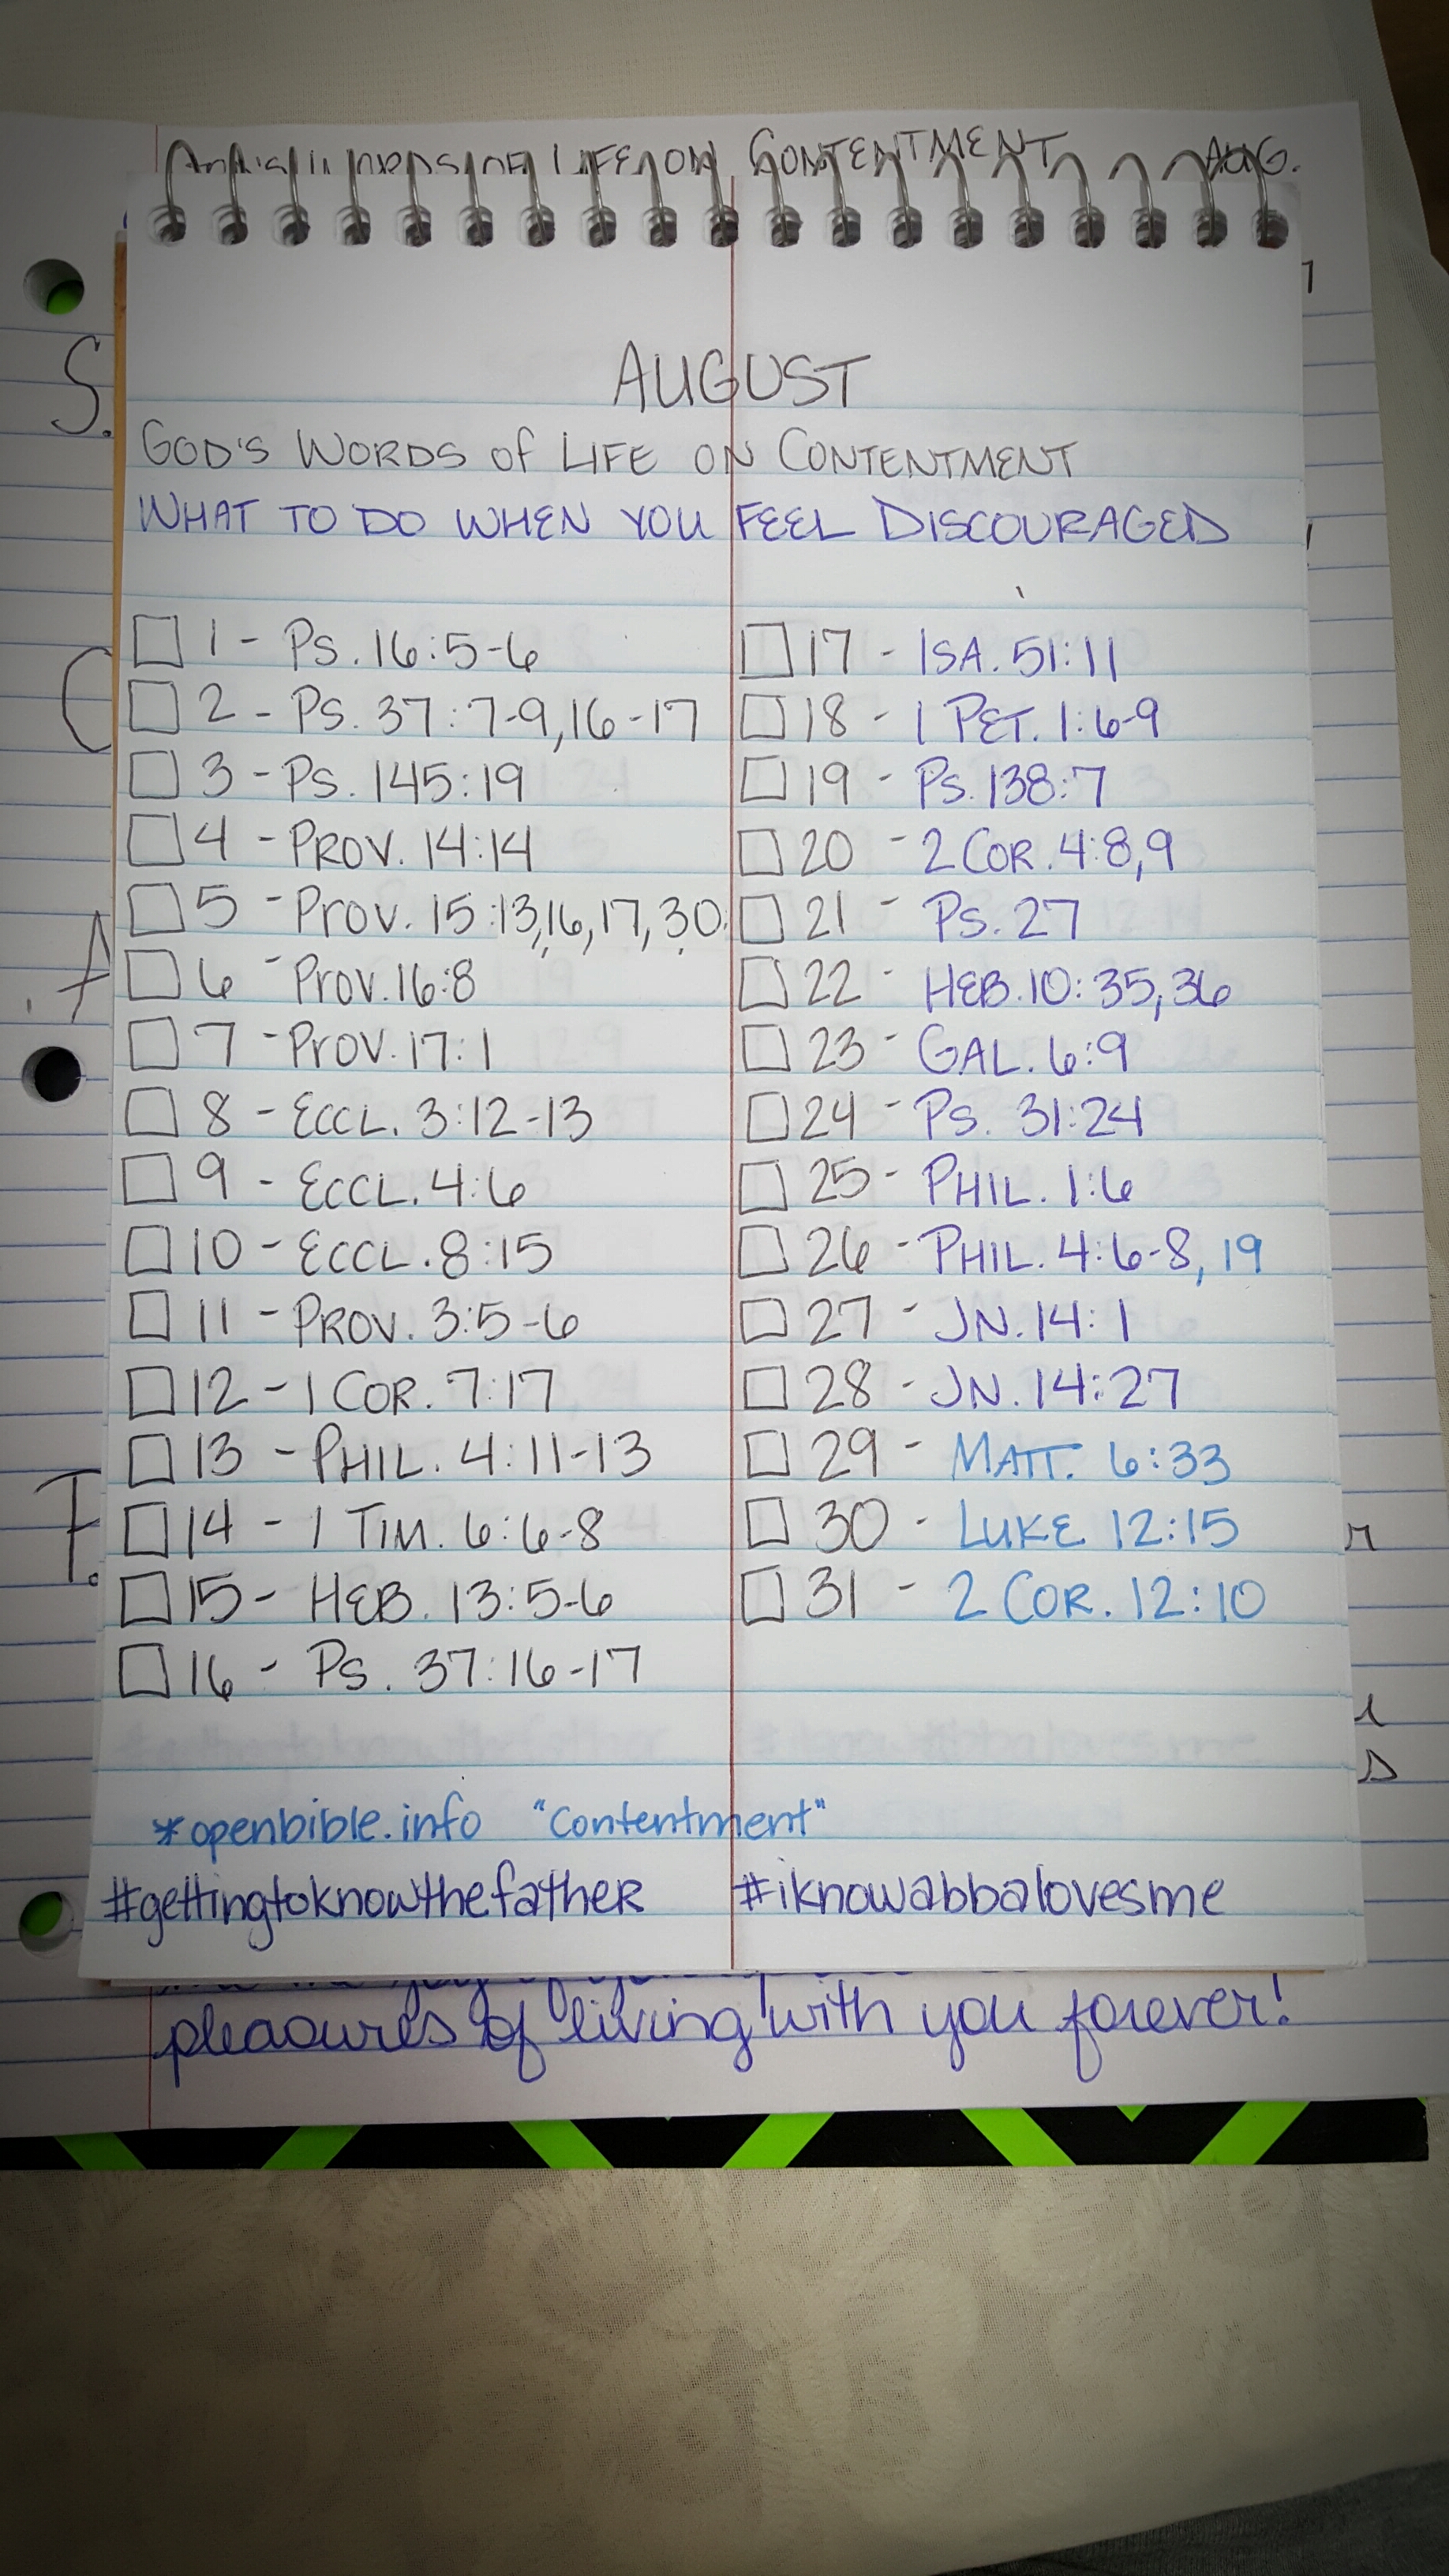 WORDS OF LIFE ON CONTENTMENT AUG.
S.
C
A
F.
AUGUST
GOD'S WORDS of LIFE ON CONTENTMENT
WHAT TO DO WHEN YOU FEEL DISCOURAGED
1 - Ps. 16:5-6
2 - Ps. 37:7-9,16-17
3 - Ps. 145:19
4 - PROV. 14:14
5 - Prov. 15:13,16,17,30
6 - Prov. 16:8
7 - Prov. 17:1
8 - ECCL. 3:12-13
9 - ECCL. 4:6
10 - ECCL. 8:15
11 - PROV. 3:5-6
12 - 1 COR. 7:17
13 - PHIL. 4:11-13
14 - 1 TIM. 6:6-8
15 - HEB. 13:5-6
16 - Ps. 37:16-17
17 - ISA. 51:11
18 - 1 PET. 1:6-9
19 - Ps. 138:7
20 - 2 COR. 4:8,9
21 - Ps. 27
22 - HEB. 10:35,36
23 - GAL. 6:9
24 - Ps. 31:24
25 - PHIL. 1:6
26 - PHIL. 4:6-8, 19
27 - JN. 14:1
28 - JN. 14:27
29 - MATT. 6:33
30 - LUKE 12:15
31 - 2 COR. 12:10
*openbible.info "Contentment"
#gettingtoknowthefather #iknowabbalovesme
pleasures of living with you forever!